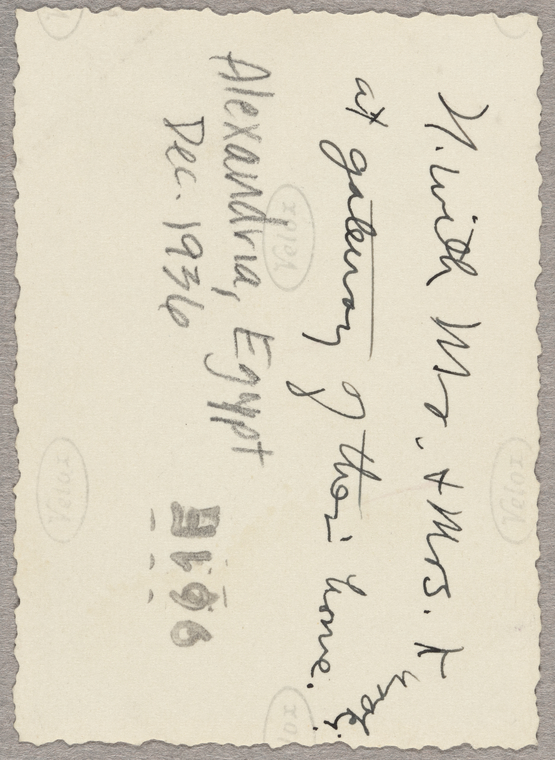 H. with Mr. & Mrs.
at gateway of their home.
Alexandria, Egypt
Dec. 1936
E166
Velox
Velox
Velox
Velox